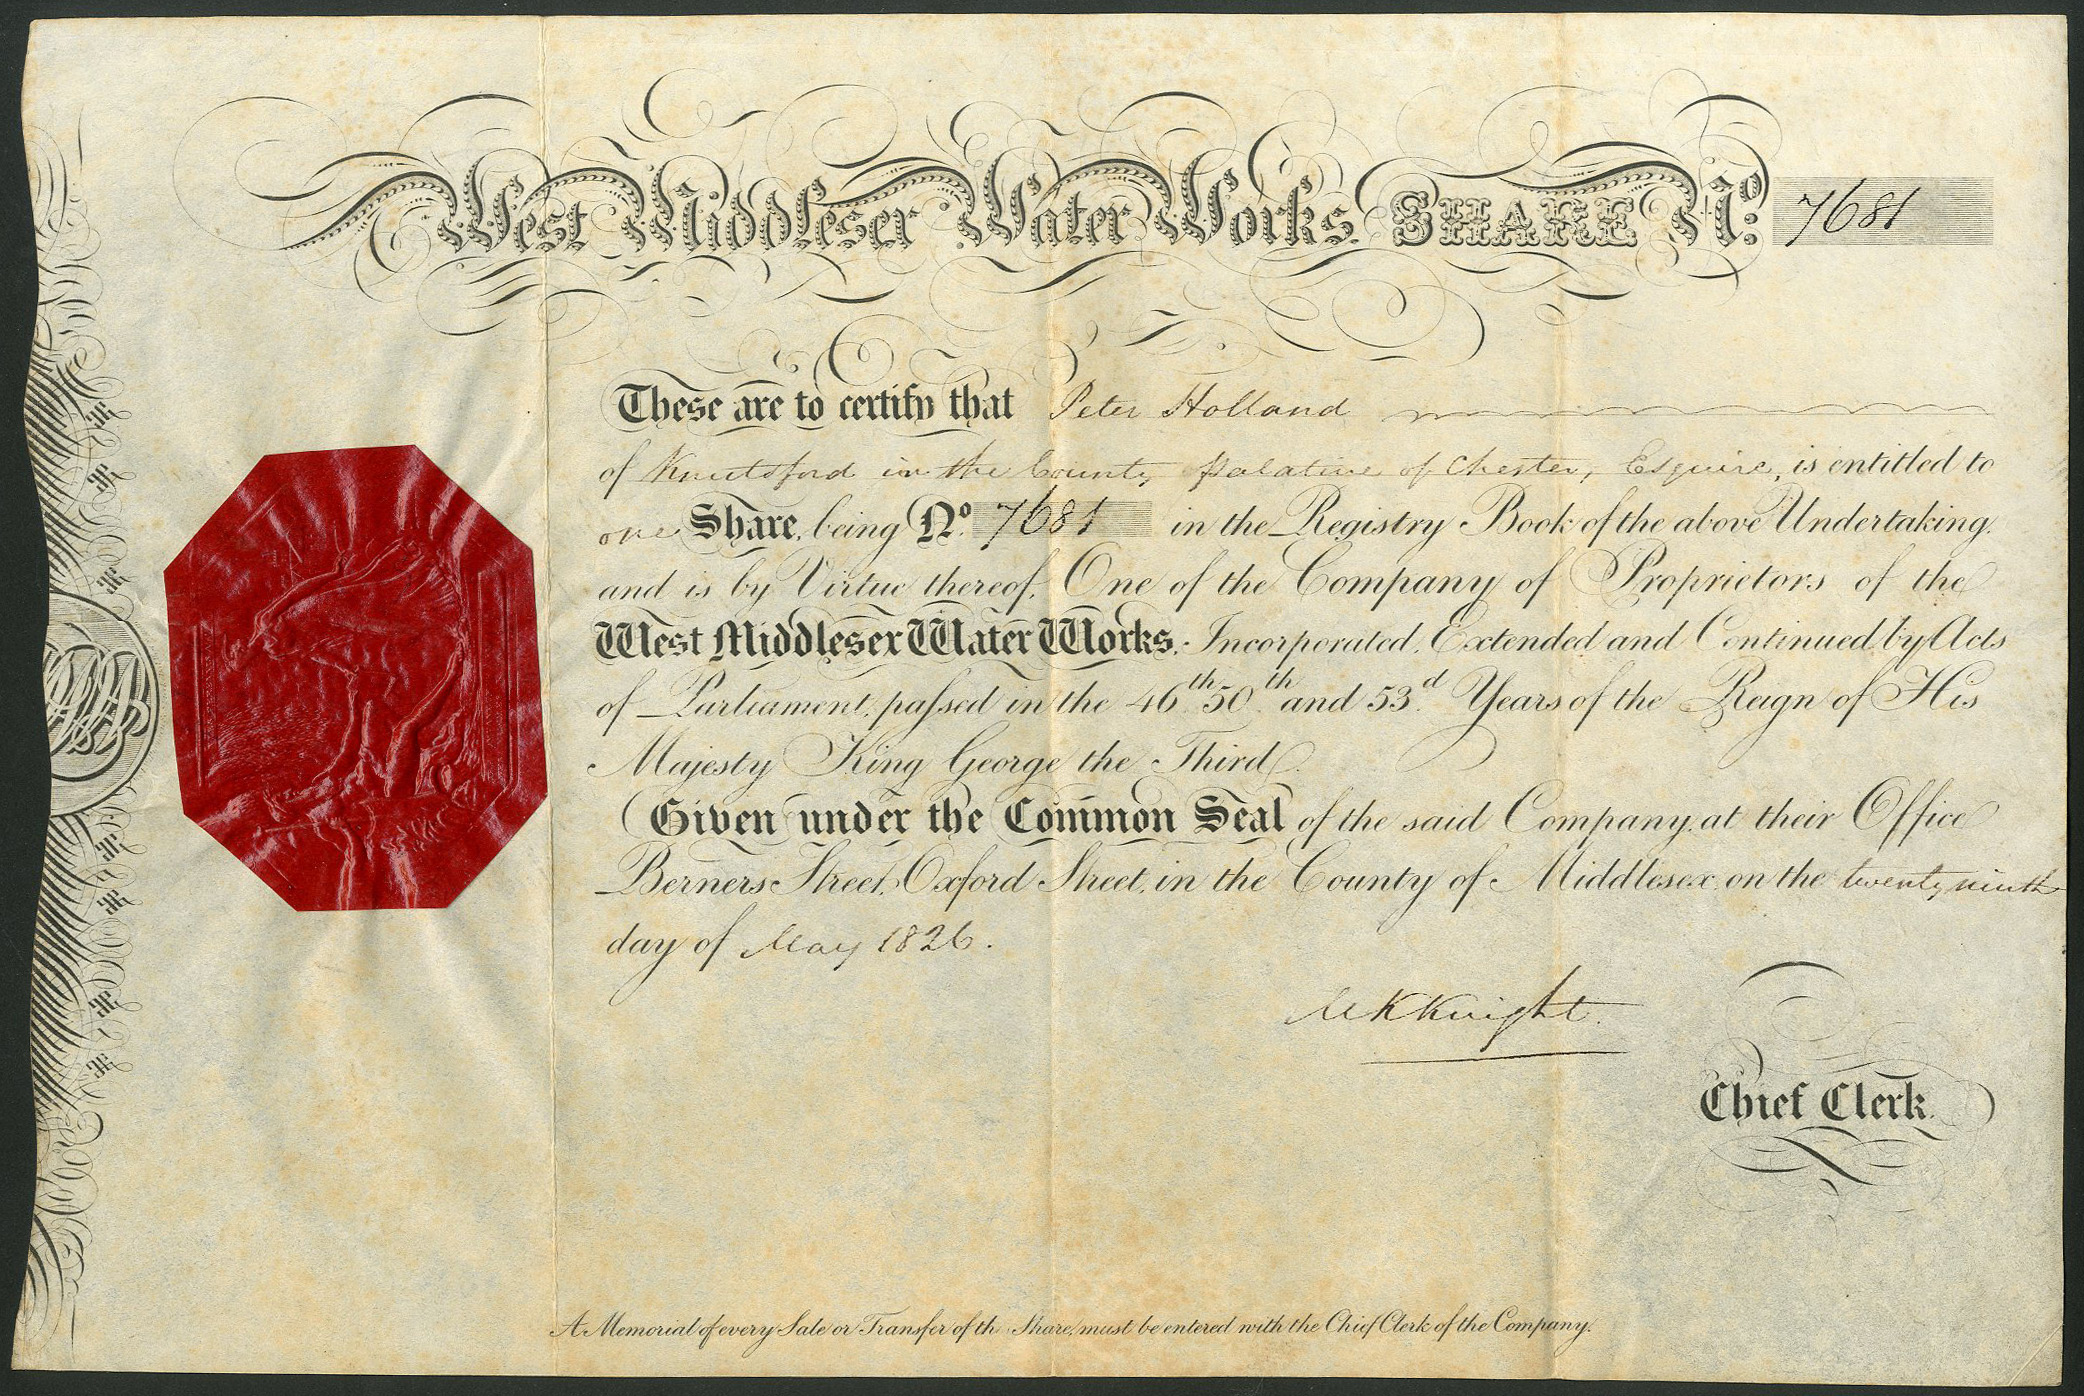 West Middlesex Water Works. SHARE No. 7681
These are to certify that Peter Holland
of Knutsford in the County Palatine of Chester, Esquire, is entitled to
one Share, being No. 7681 in the Registry Book of the above Undertaking.
and is by Virtue thereof, One of the Company of Proprietors of the
West Middlesex Water Works, Incorporated, Extended and Continued by Acts
of Parliament, paſsed in the 46th. 50th. and 53d. Years of the Reign of His
Majesty King George the Third.
Given under the Common Seal of the said Company, at their Office
Berners Street, Oxford Street, in the County of Middlesex, on the twenty ninth
day of May 1826.
Knight.
Chief Clerk.
A Memorial of every Sale or Transfer of th Share, must be entered with the Chief Clerk of the Company.